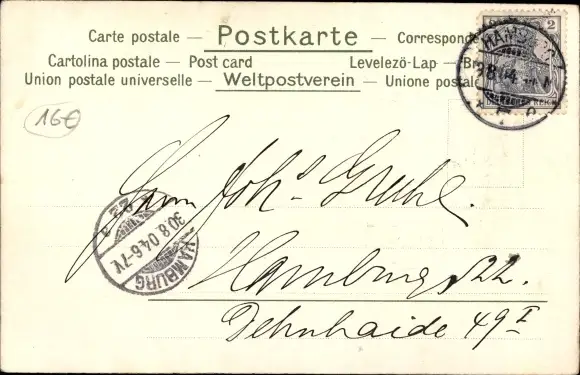 Carte postale — Postkarte — Corresponde
Cartolina postale — Post card Levelezö-Lap — Br
Union postale universelle — Weltpostverein — Unione postale
2
HAMBURG
8.04
DEUTSCHES REICH
16€
Herrn Joh^s Gruhl.
HAMBURG
30.8.04.6-7V.
22
Hamburg 22.
Dehnhaide 49 I